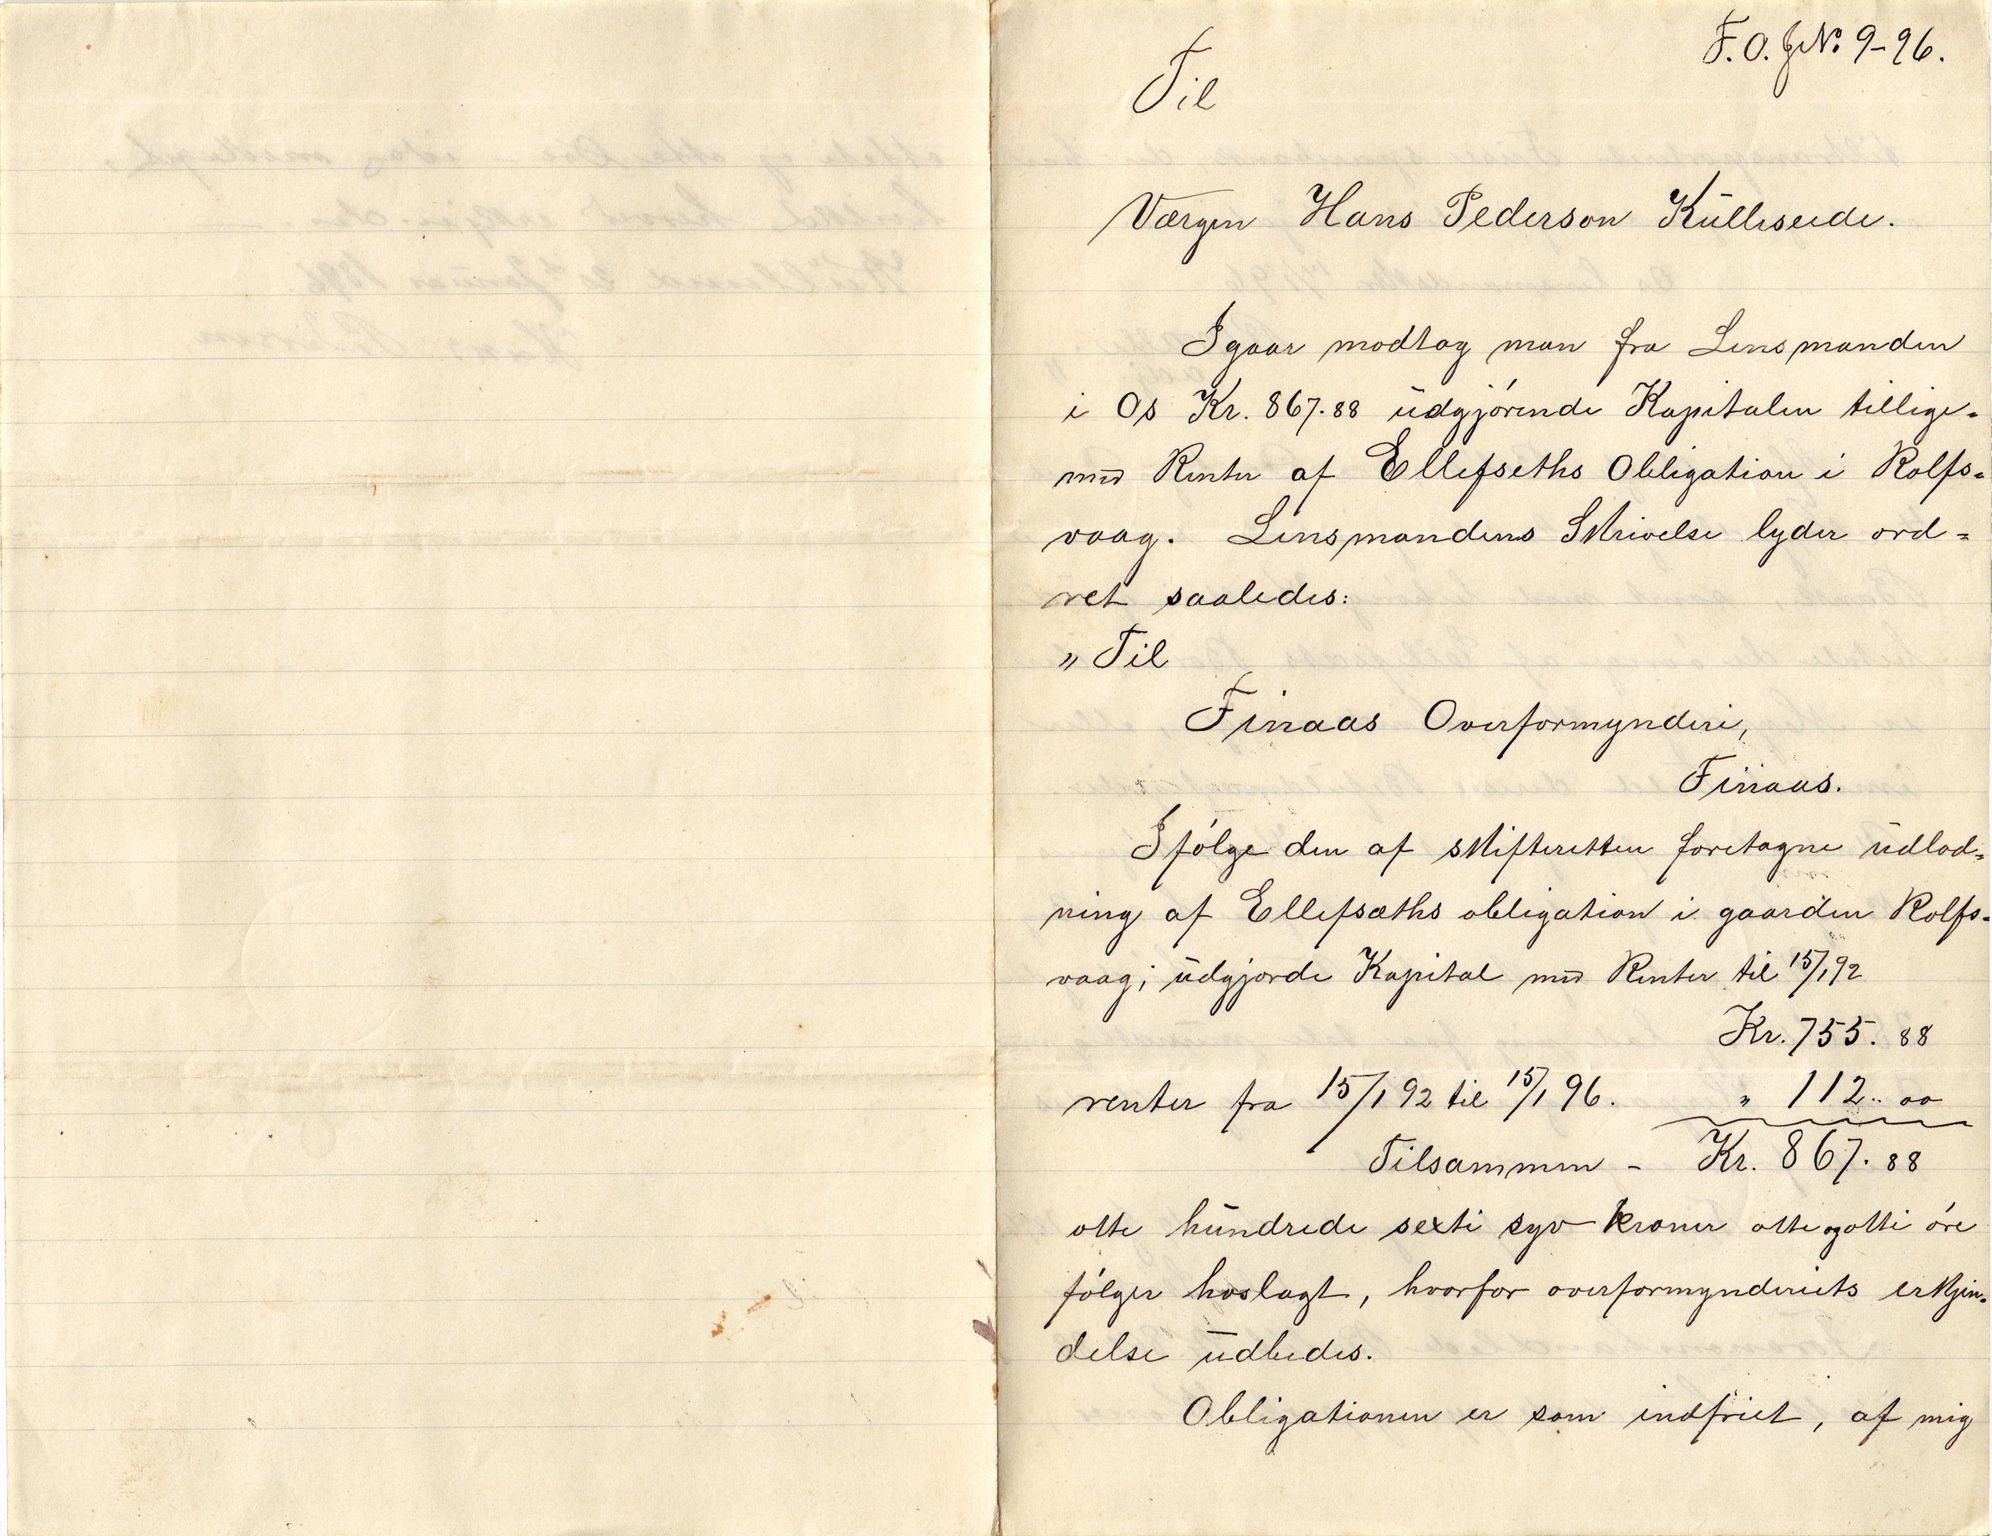 F. O. J No. 9-96.
Til
Værgen Hans Pederson Külleseide.
Igaar modtog man fra Lensmanden
i Os Kr. 867.88 üdgjórende Kapitalen tillige-
med Renter af Ellefseths Obligation i Rolfs-
vaag. Lensmandens Skrivelse lyder ord-
ret saaledes:
"Til
Finaas Overformynderi,
Finaas.
Ifólge den af skifteretten foretagne üdlod-
ning af Ellefsæths obligation i gaarden Rolfs-
vaag; üdgjorde Kapital med Renter til 15/1 92
Kr. 755. 88
renter fra 15/1 92 til 15/1 96. " 112.. oo
Tilsammen - Kr. 867. 88
otte hündrede sexti syv kroner otteogotti óre
fólger hoslagt, hvorfor overformynderiets erkjen-
delse üdbedes.
Obligationen er som indfriet, af mig